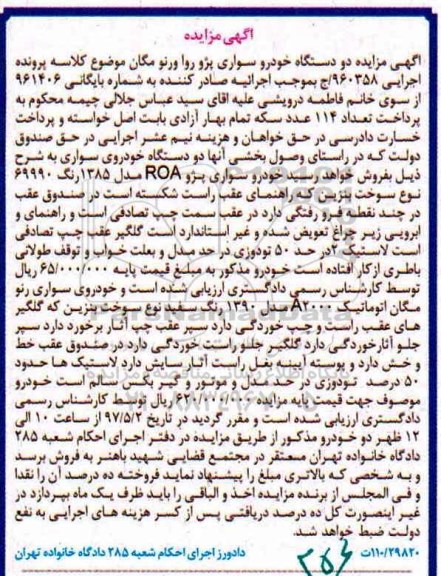 آگهی مزایده
آگهی مزایده دو دستگاه خودرو سواری پژو روا ورنو مگان موضوع کلاسه پرونده
اجرایی ۹۶۰۳۵۸/ج بموجب اجرائیه صادر کننده به شماره بایگانی ۹۶۱۴۰۶
از سوی خانم فاطمه درویشی علیه اقای سید عباس جلالی چیمه محکوم به
پرداخت تعداد ۱۱۴ عدد سکه تمام بهار آزادی بابت اصل خواسته و پرداخت
خسارت دادرسی در حق خواهان و هزینه نیم عشر اجرایی در حق صندوق
دولت که در راستای وصول بخشی آنها دو دستگاه خودروی سواری به شرح
ذیل بفروش خواهد رسید خودرو سواری پژو ROA مدل ۱۳۸۵ رنگ ۶۹۹۹۰
نوع سوخت بنزین که راهنمای عقب راست شکسته است در صندوق عقب
در چند نقطه فرو رفتگی دارد در عقب سمت چپ تصادفی است و راهنمای و
ابرویی زیر چراغ تعویض شده و غیر استاندارد است گلگیر عقب چپ تصادفی
است لاستیک ۲در حد ۵۰ تودوزی در حد مدل و بعلت خواب و توقف طولانی
باطری از کار افتاده است خودرو مذکور به مبلغ قیمت پایه ۶۵/۰۰۰/۰۰۰ ریال
توسط کارشناس رسمی دادگستری ارزیابی شده است و خودروی سواری رنو
مگان اتوماتیک A۲۰۰۰ مدل ۱۳۹۰ رنگ سفید نوع سوخت بنزین که گلگیر
های عقب راست و چپ خوردگی دارد سپر عقب چپ آثار برخورد دارد سپر
جلو آثارخوردگی دارد گلگیر جلو راست خوردگی دارد در صندوق عقب خط
و خش دارد و پوسته آیینه بغل راست آثار سایش دارد لاستیک ها حدود
۵۰ درصد تودوزی در حد مدل و موتور و گیر بکس سالم است خودرو
موصوف جهت قیمت پایه مزایده ریال توسط کارشناس رسمی
دادگستری ارزیابی شده است و مقرر گردید در تاریخ ۹۷/۵/۲ از ساعت ۱۰ الی
۱۲ ظهر دو خودرو مذکور از طریق مزایده در دفتر اجرای احکام شعبه ۲۸۵
دادگاه خانواده تهران مستقر در مجتمع قضایی شهید باهنر به فروش برسد
و به شخصی که بالاتری مبلغ را پیشنهاد نماید فروخته ده درصد آن را نقدا
و فی المجلس از برنده مزایده اخذ و الباقی را باید ظرف یک ماه بپردازد در
غیر اینصورت کل ده درصد دریافتی پس از کسر هزینه های اجرایی به نفع
دولت ضبط خواهد شد.
۱۱۰/۲۹۸۲۰ت دادورز اجرای احکام شعبه ۲۸۵ دادگاه خانواده تهران